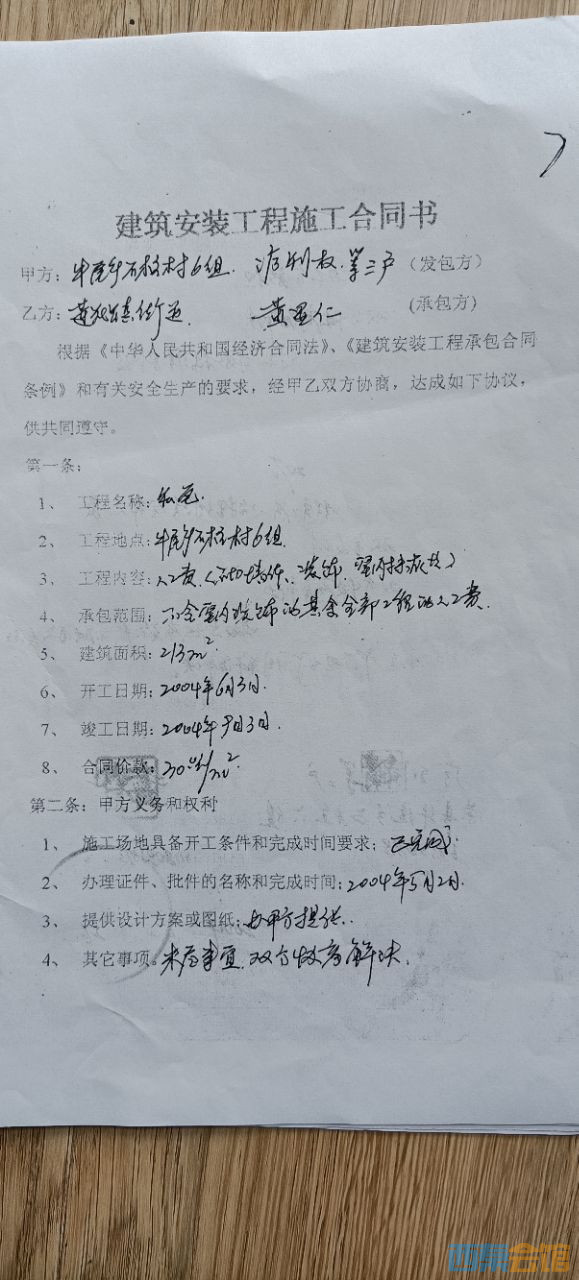 建筑安装工程施工合同书
甲方：牛尾乡石柱村6组 利权 第三户（发包方）
乙方：镇街道 黄 仁 (承包方)
根据《中华人民共和国经济合同法》、《建筑安装工程承包合同
条例》和有关安全生产的要求，经甲乙双方协商，达成如下协议，
供共同遵守。
第一条：
1、 工程名称：私宅.
2、 工程地点：牛尾乡石柱村6组
3、 工程内容：人工费（
4、 承包范围：不含室内装饰的其余全部工程的人工费.
5、 建筑面积：213m²
6、 开工日期：2004年6月3日.
7、 竣工日期：2004年9月3日.
8、 合同价款： /m²
第二条：甲方义务和权利
1、 施工场地具备开工条件和完成时间要求：已完成
2、 办理证件、批件的名称和完成时间：2004年5月2日.
3、 提供设计方案或图纸：由甲方提供.
4、 其它事项。未尽事宜.双方协商解决.
西泵会馆